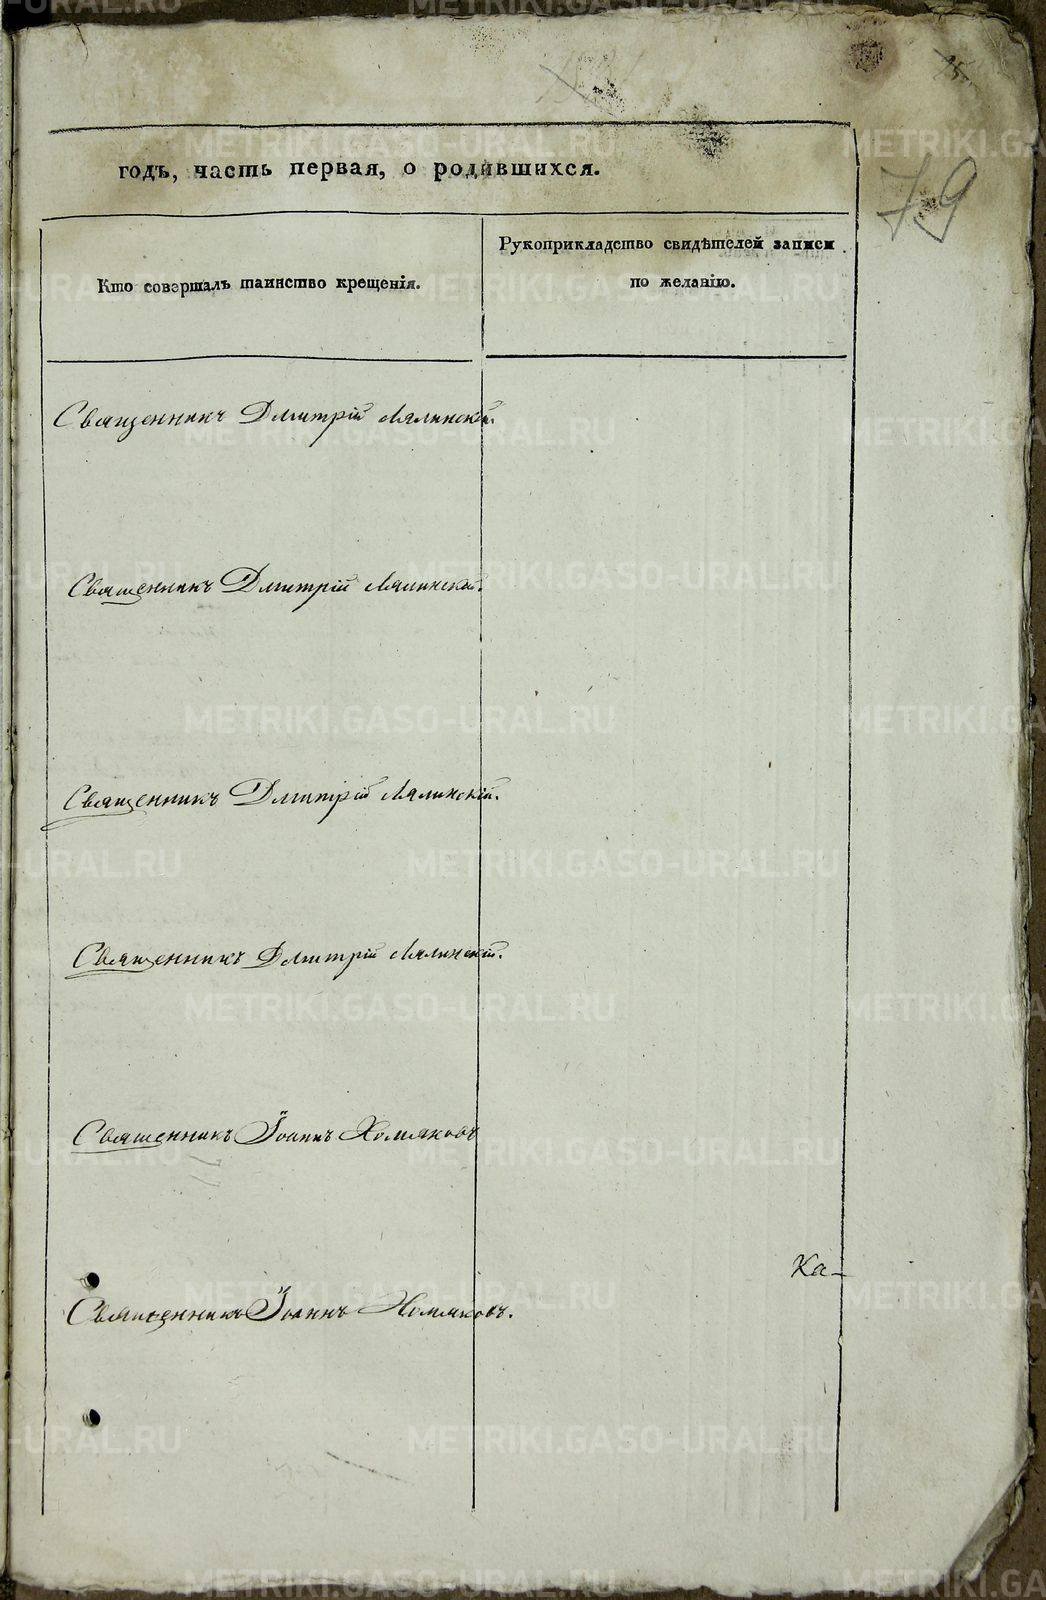 79
годъ, часть первая, о родившихся.
Кто совершалъ таинство крещенія.
Рукоприкладство свидѣтелей записи
по желанію.
Священникъ Дмитрій Лялинскій.
Священникъ Дмитрій Лялинскій.
Священникъ Дмитрій Лялинскій.
Священникъ Дмитрій Лялинскій.
Священникъ Іоаннъ Хомяковъ
Ка-
Священникъ Іоаннъ Хомяковъ.
METRIKI.GASO-URAL.RU